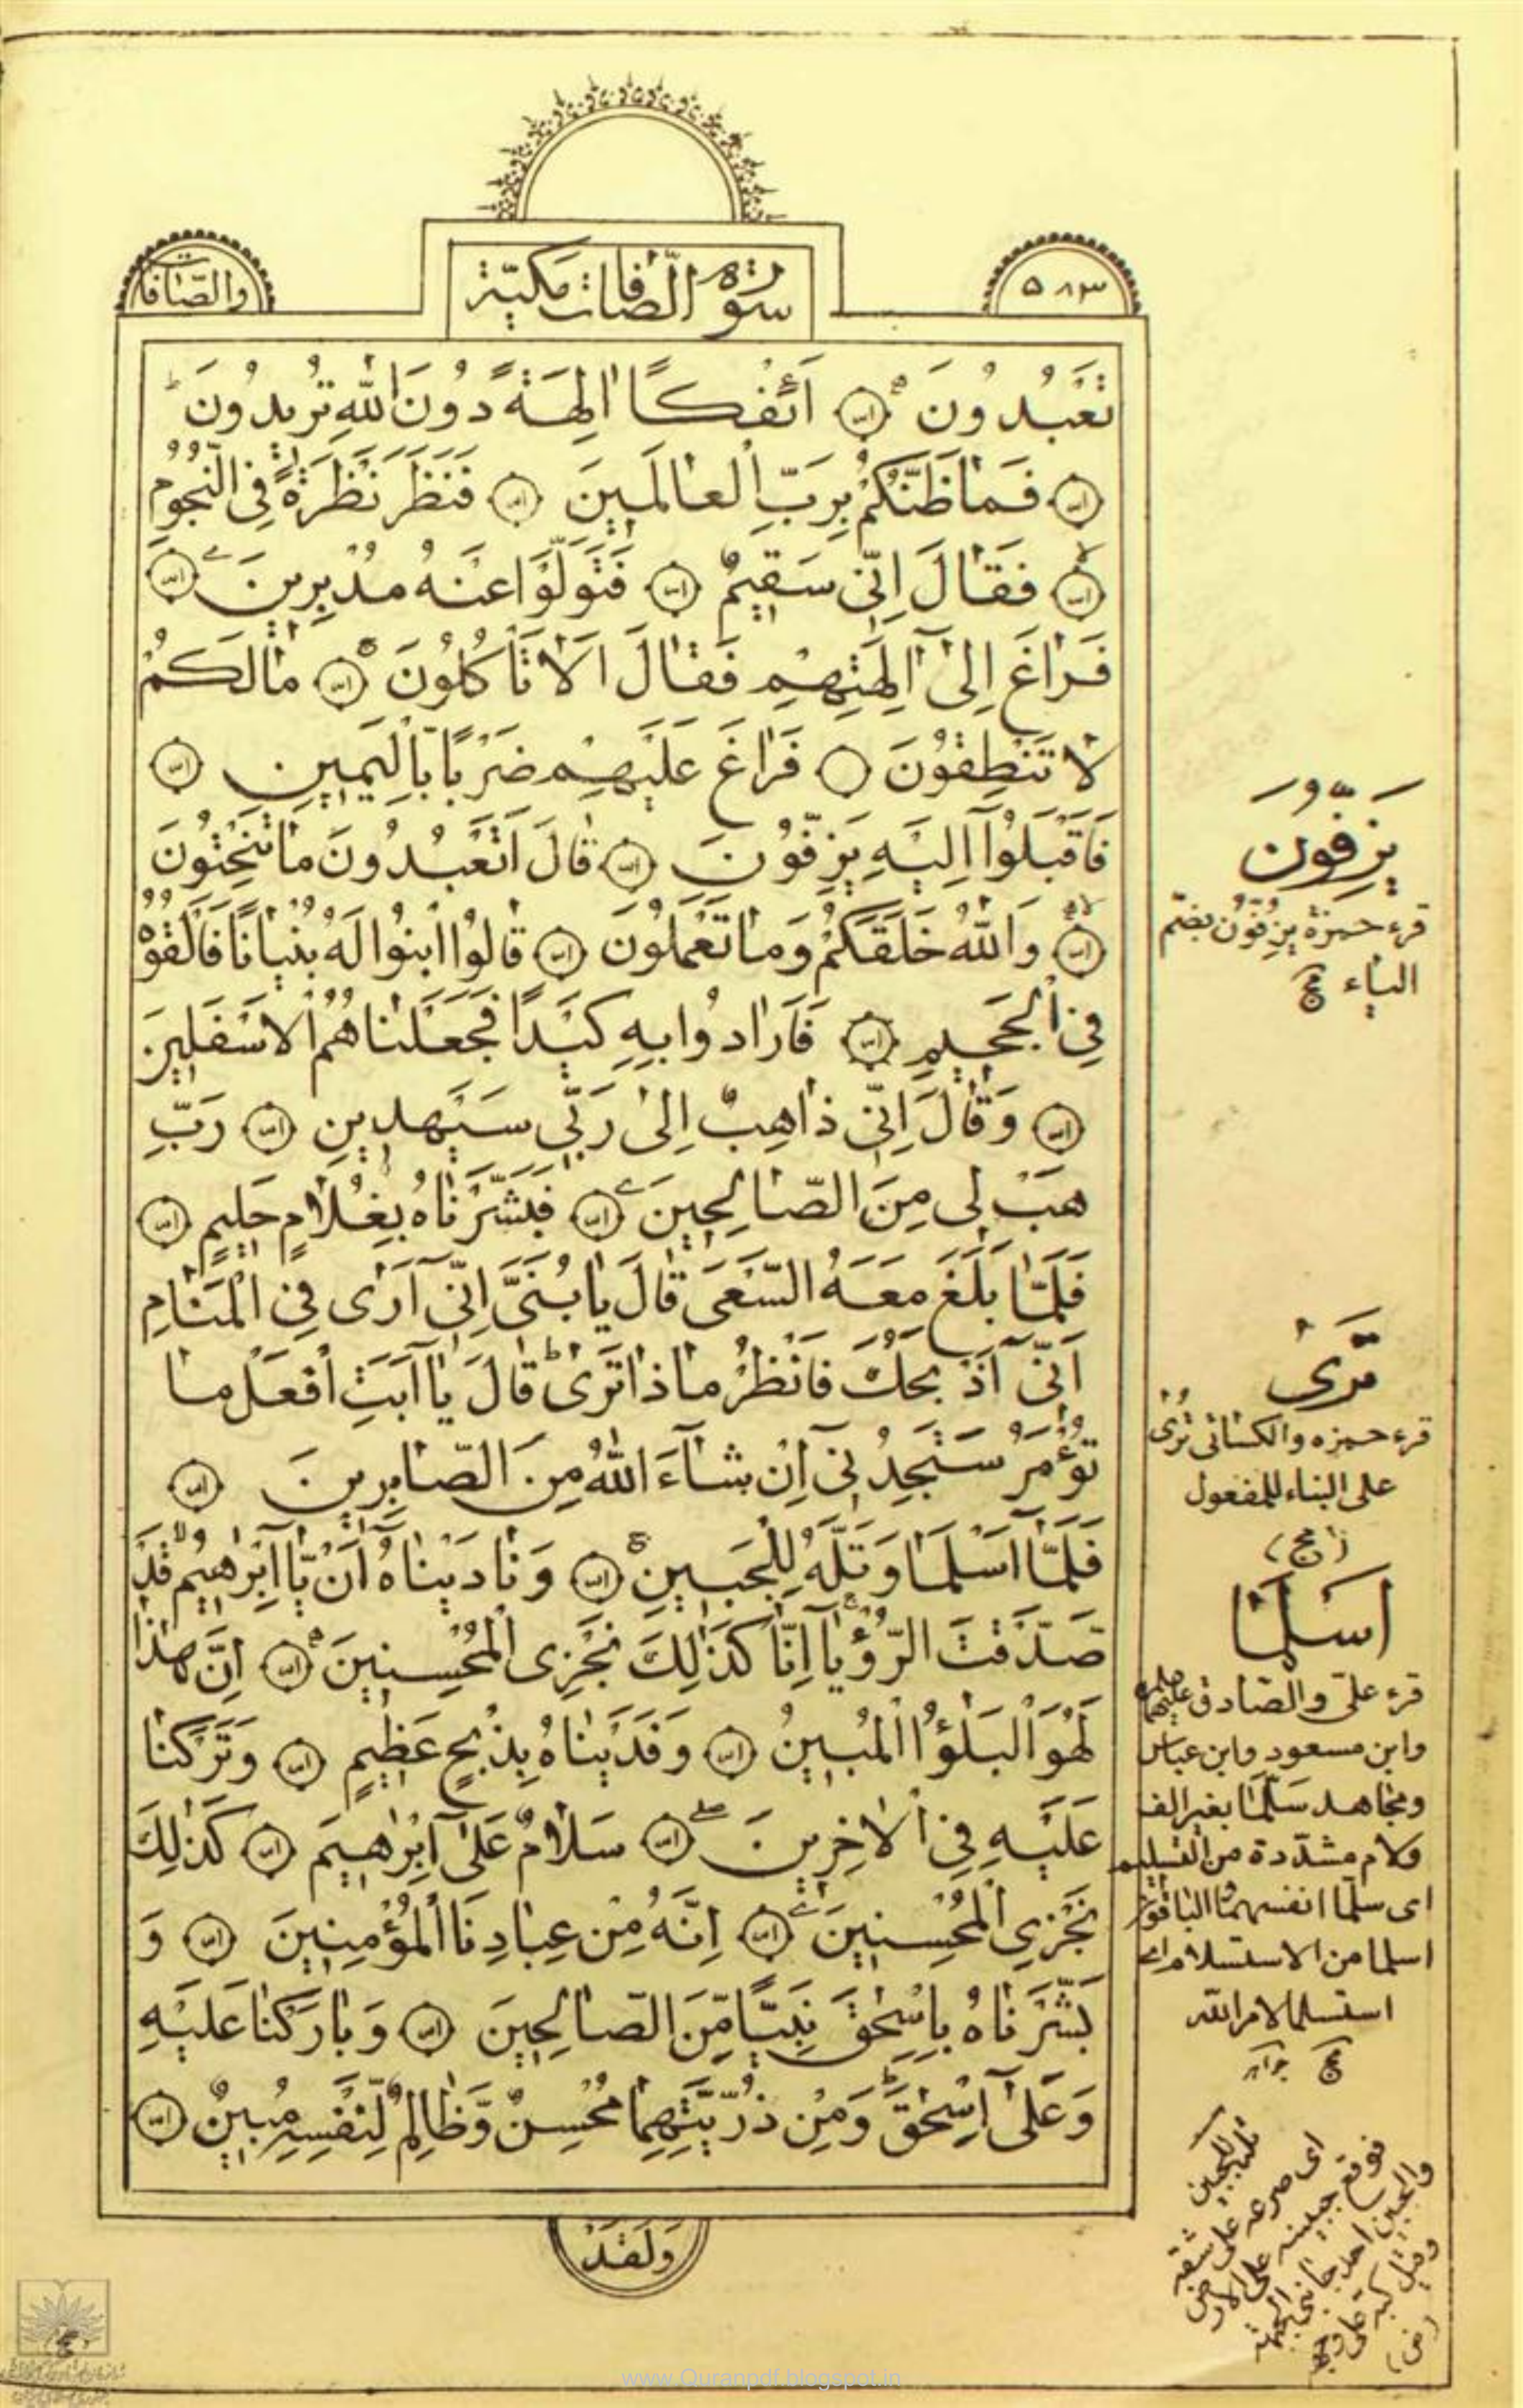 والصّافات
سورة الصّافات مكيّة
٥٨٣
تَعْبُدُونَ اَئِفْكًا اٰلِهَةً دُونَ اللّٰهِ تُرِيدُونَ
فَمٰا ظَنُّكُمْ بِرَبِّ الْعٰالَمِينَ فَنَظَرَ نَظْرَةً فِى النُّجُومِ
فَقٰالَ اِنّى سَقِيمٌ فَتَوَلَّوْا عَنْهُ مُدْبِرِينَ
فَرٰاغَ اِلىٰٓ اٰلِهَتِهِمْ فَقٰالَ اَلاٰ تَأْكُلُونَ مٰا لَكُمْ
لاٰ تَنْطِقُونَ فَرٰاغَ عَلَيْهِمْ ضَرْبًا بِالْيَمِينِ
فَاَقْبَلُوٓا اِلَيْهِ يَزِفُّونَ قٰالَ اَتَعْبُدُونَ مٰا تَنْحِتُونَ
وَاللّٰهُ خَلَقَكُمْ وَمٰا تَعْمَلُونَ قٰالُوا ابْنُوا لَهُ بُنْيٰانًا فَاَلْقُوهُ
فِى الْجَحِيمِ فَاَرٰادُوا بِهِ كَيْدًا فَجَعَلْنٰاهُمُ الْاَسْفَلِينَ
وَقٰالَ اِنّى ذٰاهِبٌ اِلىٰ رَبّى سَيَهْدِينِ رَبِّ
هَبْ لى مِنَ الصّٰالِحِينَ فَبَشَّرْنٰاهُ بِغُلاٰمٍ حَلِيمٍ
فَلَمّٰا بَلَغَ مَعَهُ السَّعْىَ قٰالَ يٰا بُنَىَّ اِنّىٓ اَرٰى فِى الْمَنٰامِ
اَنّىٓ اَذْبَحُكَ فَانْظُرْ مٰا ذٰا تَرٰىٰ قٰالَ يٰٓا اَبَتِ افْعَلْ مٰا
تُؤْمَرُ سَتَجِدُنىٓ اِنْ شٰآءَ اللّٰهُ مِنَ الصّٰابِرِينَ
فَلَمّٰٓا اَسْلَمٰا وَتَلَّهُ لِلْجَبِينِ وَنٰادَيْنٰاهُ اَنْ يٰٓا اِبْرٰهِيمُ قَدْ
صَدَّقْتَ الرُّؤْيٰٓا اِنّٰا كَذٰلِكَ نَجْزِى الْمُحْسِنِينَ اِنَّ هٰذٰا
لَهُوَ الْبَلٰٓؤُا الْمُبِينُ وَفَدَيْنٰاهُ بِذِبْحٍ عَظِيمٍ وَتَرَكْنٰا
عَلَيْهِ فِى الْاٰخِرِينَ سَلاٰمٌ عَلىٰٓ اِبْرٰهِيمَ كَذٰلِكَ
نَجْزِى الْمُحْسِنِينَ اِنَّهُ مِنْ عِبٰادِنَا الْمُؤْمِنِينَ وَ
بَشَّرْنٰاهُ بِاِسْحٰقَ نَبِيًّا مِّنَ الصّٰالِحِينَ وَبٰارَكْنٰا عَلَيْهِ
وَعَلىٰٓ اِسْحٰقَ وَمِنْ ذُرِّيَّتِهِمٰا مُحْسِنٌ وَّظٰالِمٌ لِّنَفْسِهِ مُبِينٌ
وَلَقَدْ
يَزِفُّونَ
قرء حمزة يُزِفُّونَ بضمّ
الياء مج
تَرىٰ
قرء حمزه والكسائى تُرى
على البناء للمفعول
(مج)
اَسْلَمٰا
قرء علىّ والصّادق عليهما
وابن مسعود وابن عباس
ومجاهد سَلَّمٰا بغير الف
ولام مشدّدة من التسليم
اى سلّما انفسهما والباقون
اسلما من الاستسلام اى
استسلما لامر الله
مج
تلّه للجبين
اى صرعه على شقه
فوقع جبينه على الارض
والجبين احد جانبى الجبهة
وقيل كبه على وجهه
www.Quranpdf.blogspot.in